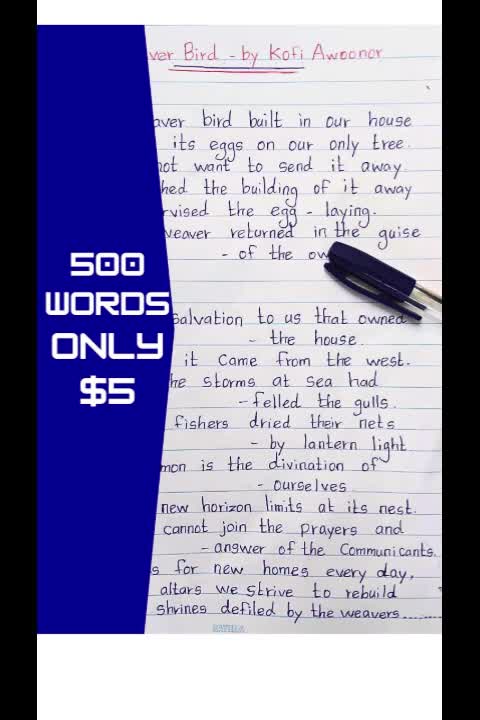 ver Bird - by Kofi Awoonor
aver bird built in our house
its eggs on our only tree.
not want to send it away
hed the building of it away
rvised the egg - laying.
weaver returned in the guise
- of the ow
500
WORDS
ONLY
$5
Salvation to us that owned
- the house.
it came from the west.
he storms at sea had
- felled the gulls.
fishers dried their nets
- by lantern light
mon is the divination of
- ourselves
new horizon limits at its nest.
cannot join the prayers and
- answer of the Communicants.
s for new homes every day,
altars we strive to rebuild
shrines defiled by the weavers.........